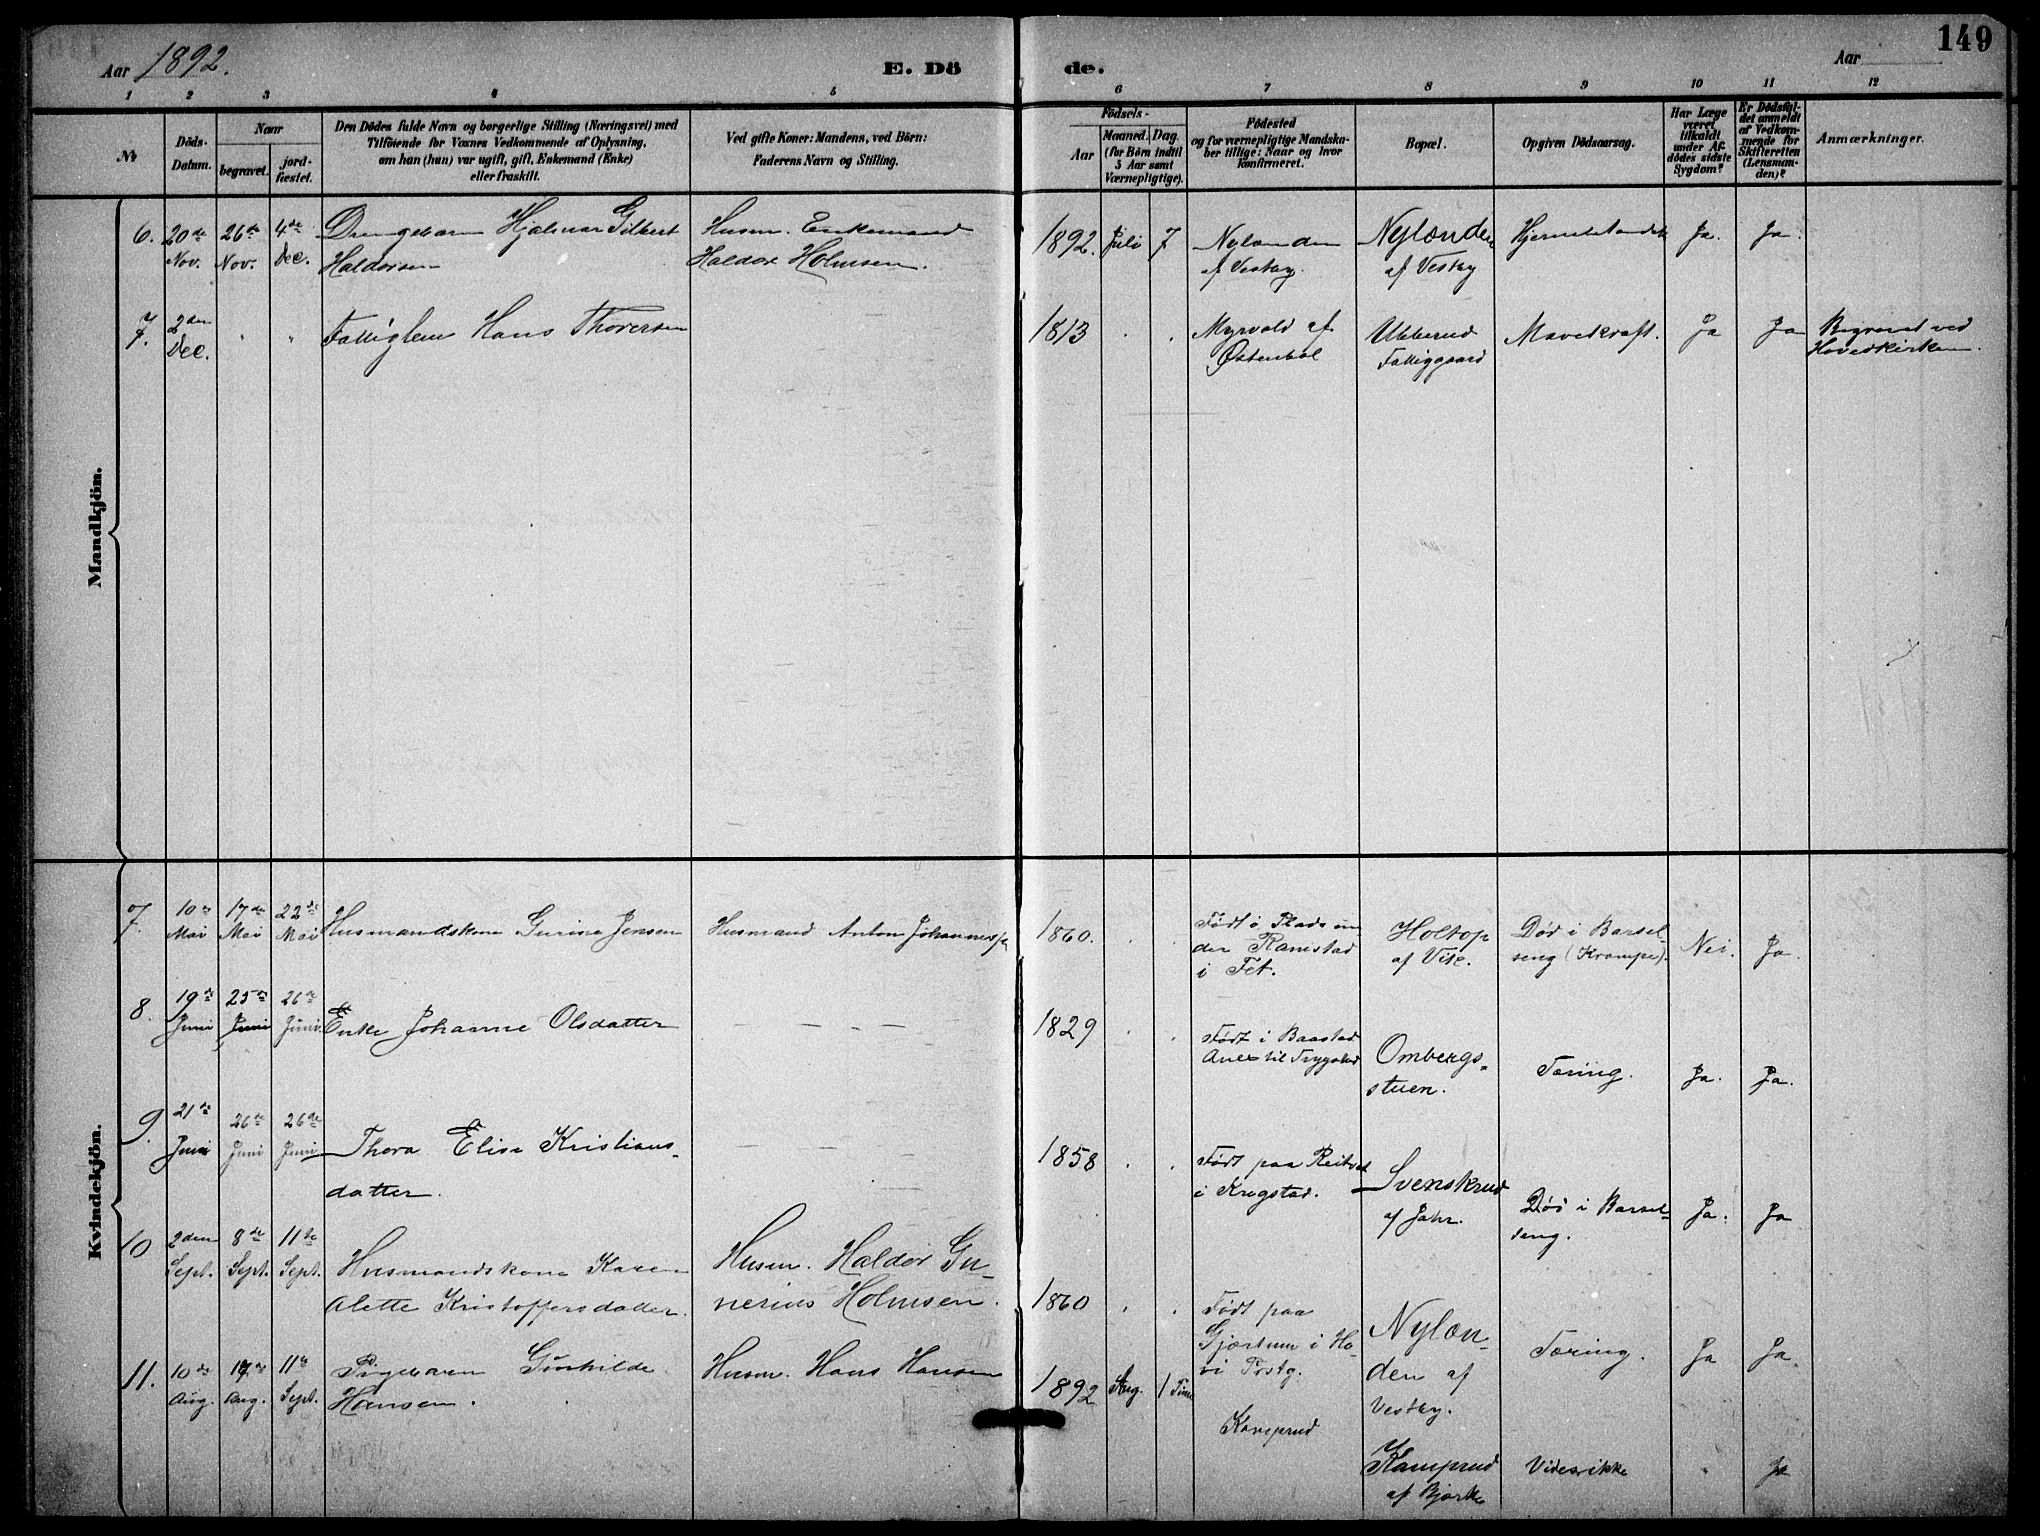 149
Aar 1892.
E. Dö de.
Aar
1 2 3 4 5 6 7 8 9 10 11 12
No
Döds-
Datum.
Naar
begravet.
jord-
fæstet.
Den Dödes fulde Navn og borgerlige Stilling (Næringsvei) med
Tilföiende for Voxnes Vedkommende af Oplysning,
om han (hun) var ugift, gift, Enkemand (Enke)
eller fraskilt.
Ved gifte Koner: Mandens, ved Börn:
Faderens Navn og Stilling.
Födsels-
Aar
Maaned. Dag.
(for Börn indtil
5 Aar samt
Værnepligtige).
Födested
og for værnepligtige Mandska-
ber tillige: Naar og hvor
konfirmeret.
Bopæl.
Opgiven Dödsaarsag.
Har Læge
været
tilkaldt
under Af-
dödes sidste
Sygdom?
Er Dödsfal-
det anmeldt
af Vedkom-
mende for
Skifteretten
(Lensman-
den)?
Anmærkninger.
Mandkjön.
6. 20de Nov. 26de Nov. 4de Dec.
Drengebarn Hjalmar Gilbert
Haldorsen
Husm. Enkemand
Haldor Holmsen.
1892. Juli 7
Nylanden
af Vestby.
Nylænden
af Vestby
Ja. Ja.
7. 2den Dec. " "
Fattiglem Hans Thoversen
1813 . .
Myrvold af
Østenbøl
Ubberud
Fattiggaard
Mavekræft.
Ja Ja
Begravet ved
Hovedkirken.
Kvindekjön.
7. 10de Mai 17de Mai 22de Mai
Husmandskone Gurine Jensen
Husmand Anton Johanness.
1860. . .
Født i Plads un
der Ramstad
i Fet.
Holtop
af Vik.
Død i Barsel-
seng (Krampe).
Nei. Ja.
8. 19de Juni 25de Juni 26de Juni.
Enke Johanne Olsdatter
- - - -
1829 . .
Født i Baastad
Anex til Trygstad
Ombergs-
stuen.
Tæring.
Ja. Ja.
9. 21de Juni 26de Juni 26de Juni
Thora Elise Kristians-
datter.
- - -
1858 . .
Født paa
i Krogstad.
Svenskrud
af Jahr.
Død i Barsel-
seng.
Ja. Ja
10 2den Sept. 8de Sept. 11te Sept.
Husmandskone Karen
Alette Kristoffersdatter.
Husm. Haldor Gu-
nerius Holmsen.
1860 . .
Født paa
Gjærtum i Ho-
vi Prstg.
Nylæn-
den af
Vestby.
Tæring.
Ja Ja.
11. 10de Aug. 17de Aug. 11te Sept.
Pigebarn Gunhilde
Hansen.
Husm. Hans Hansen
1892 Aug. 1 Time
Kamprud
Kamprud
af Bjørke
Videsikke
" Ja